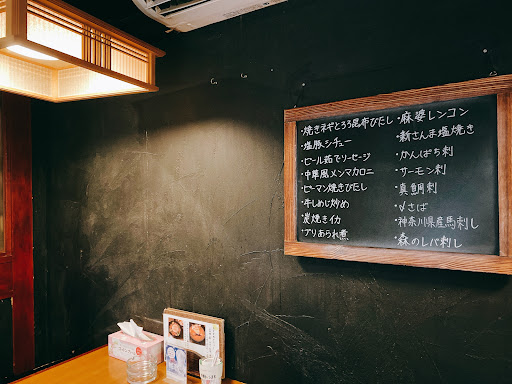 ・焼きネギとろろ昆布ひたし
・塩豚シチュー
・ビール茹でソーセージ
・中華風メンマカロニ
・ピーマン焼きびたし
・牛しめじ炒め
・炭焼きイカ
・ブリあられ煮
・麻婆レンコン
・新さんま塩焼き
・かんぱち刺
・サーモン刺
・真鯛刺
・〆さば
・神奈川県産馬刺し
・森のレバ刺し